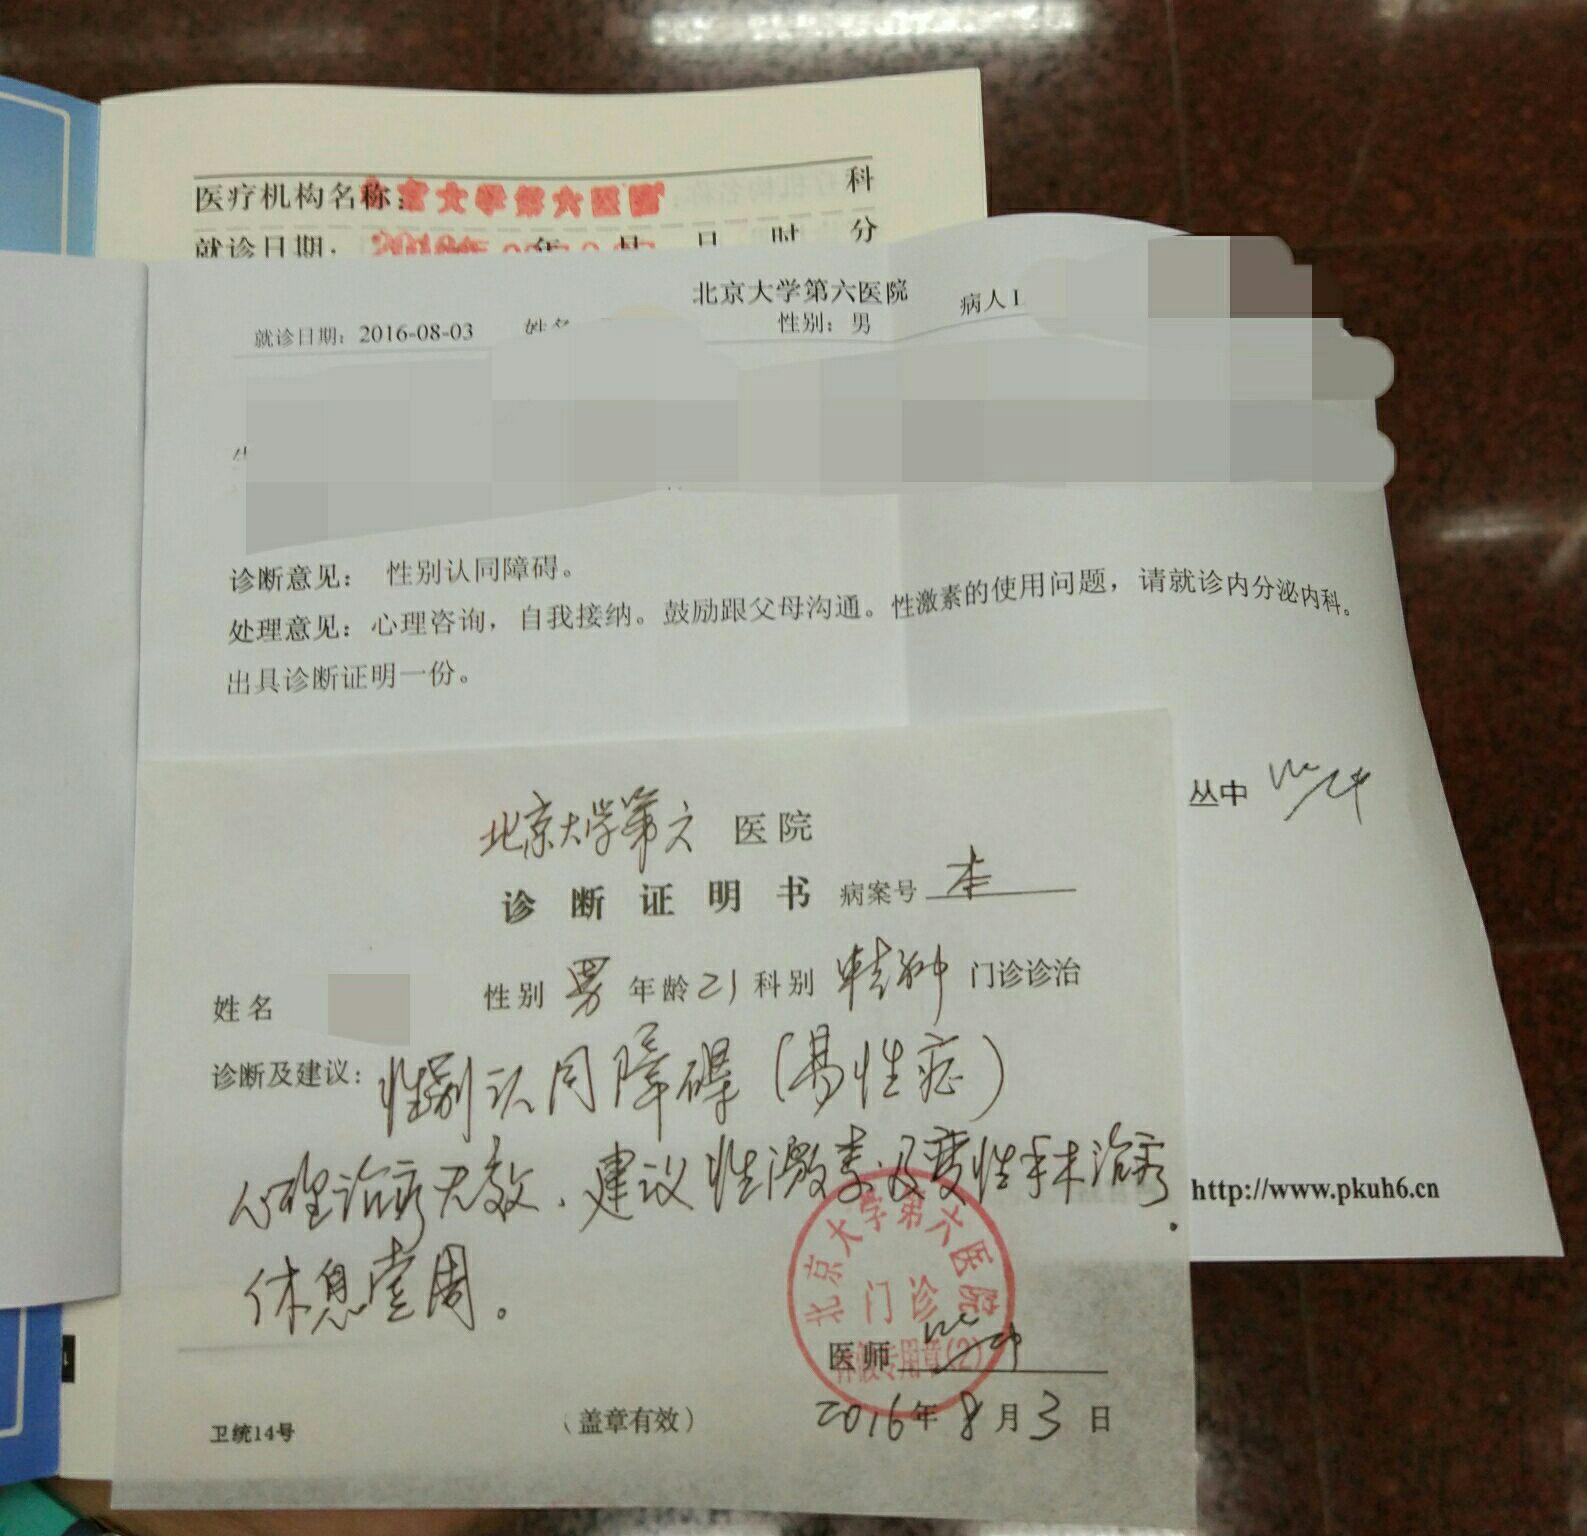 医疗机构名称：北京大学第六医院 科
就诊日期： 年 月 日 时 分
北京大学第六医院
就诊日期：2016-08-03 姓名 性别：男 病人I
诊断意见： 性别认同障碍。
处理意见：心理咨询，自我接纳。鼓励跟父母沟通。性激素的使用问题，请就诊内分泌内科。
出具诊断证明一份。
丛中 丛中
北京大学第六 医院
诊断证明书 病案号 本
姓名 性别 男 年龄 21 科别 精神 门诊诊治
诊断及建议：性别认同障碍（易性症）
心理治疗无效，建议性激素及变性手术治疗.
休息壹周。
http://www.pkuh6.cn
北京大学第六医院
门诊
专用章(2)
医师 丛中
2016年 8月 3日
（盖章有效）
卫统14号